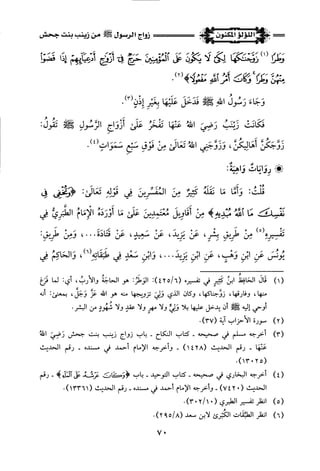 اللؤلؤ المكنون
زواج الرسول ﷺ من زينب بنت جحش
وَطَرًا (١) زَوَّجْنَاكَهَا لِكَيْ لَا يَكُونَ عَلَى الْمُؤْمِنِينَ حَرَجٌ فِي أَزْوَاجِ أَدْعِيَائِهِمْ إِذَا قَضَوْا
مِنْهُنَّ وَطَرًا وَكَانَ أَمْرُ اللَّهِ مَفْعُولًا﴾ (٢).
وَجَاءَ رَسُولُ اللهِ ﷺ فَدَخَلَ عَلَيْهَا بِغَيْرِ إِذْنٍ (٣).
فَكَانَتْ زَيْنَبُ رَضِيَ اللهُ عَنْهَا تَفْخَرُ عَلَى أَزْوَاجِ الرَّسُولِ ﷺ تَقُولُ:
زَوَّجَكُنَّ أَهَالِيكُنَّ، وَزَوَّجَنِي اللهُ تَعَالَى مِنْ فَوْقِ سَبْعِ سَمَوَاتٍ (٤).
رِوَايَاتٌ وَاهِيَةٌ:
قُلْتُ: وَأَمَّا مَا نَقَلَهُ كَثِيرٌ مِنَ الْمُفَسِّرِينَ فِي قَوْلِهِ تَعَالَى: ﴿وَتُخْفِي فِي
نَفْسِكَ مَا اللَّهُ مُبْدِيهِ﴾ مِنْ أَقَاوِيلَ مُعْتَمِدِينَ عَلَى مَا أَوْرَدَهُ الْإِمَامُ الطَّبَرِيُّ فِي
تَفْسِيرِهِ (٥) مِنْ طَرِيقِ بِشْرٍ، عَنْ يَزِيدَ، عَنْ سَعِيدٍ، عَنْ قَتَادَةَ...، وَمِنْ طَرِيقِ:
يُونُسَ عَنِ ابْنِ وَهْبٍ، عَنِ ابْنِ يَزِيدَ...، وَابْنُ سَعْدٍ فِي طَبَقَاتِهِ (٦)، وَالْحَاكِمُ فِي
(١) قَالَ الْحَافِظُ ابْنُ كَثِيرٍ فِي تَفْسِيرِهِ (٤٢٥/٦): الْوَطَرُ: هُوَ الْحَاجَةُ وَالْأَرَبُ، أَيْ: لَمَّا فَرَغَ
مِنْهَا، وَفَارَقَهَا، زَوَّجْنَاكَهَا، وَكَانَ الَّذِي وَلِيَ تَزْوِيجَهَا مِنْهُ هُوَ اللهُ عَزَّ وَجَلَّ، بِمَعْنَى: أَنَّهُ
أَوْحَى إِلَيْهِ ﷺ أَنْ يَدْخُلَ عَلَيْهَا بِلَا وَلِيٍّ وَلَا مَهْرٍ وَلَا عَقْدٍ وَلَا شُهُودٍ مِنَ الْبَشَرِ.
(٢) سورة الأحزاب آية (٣٧).
(٣) أخرجه مسلم في صحيحه - كتاب النكاح - باب زواج زينب بنت جحش رَضِيَ اللهُ
عَنْهَا - رقم الحديث (١٤٢٨) - وأخرجه الإمام أحمد في مسنده - رقم الحديث
(١٣٠٢٥).
(٤) أخرجه البخاري في صحيحه - كتاب التوحيد - باب ﴿وَكَانَ عَرْشُهُ عَلَى الْمَاءِ﴾ - رقم
الحديث (٧٤٢٠) - وأخرجه الإمام أحمد في مسنده - رقم الحديث (١٣٣٦١).
(٥) انظر تفسير الطبري (٣٠٢/١٠).
(٦) انظر الطبقات الكبرى لابن سعد (٢٩٥/٨).
٧٠